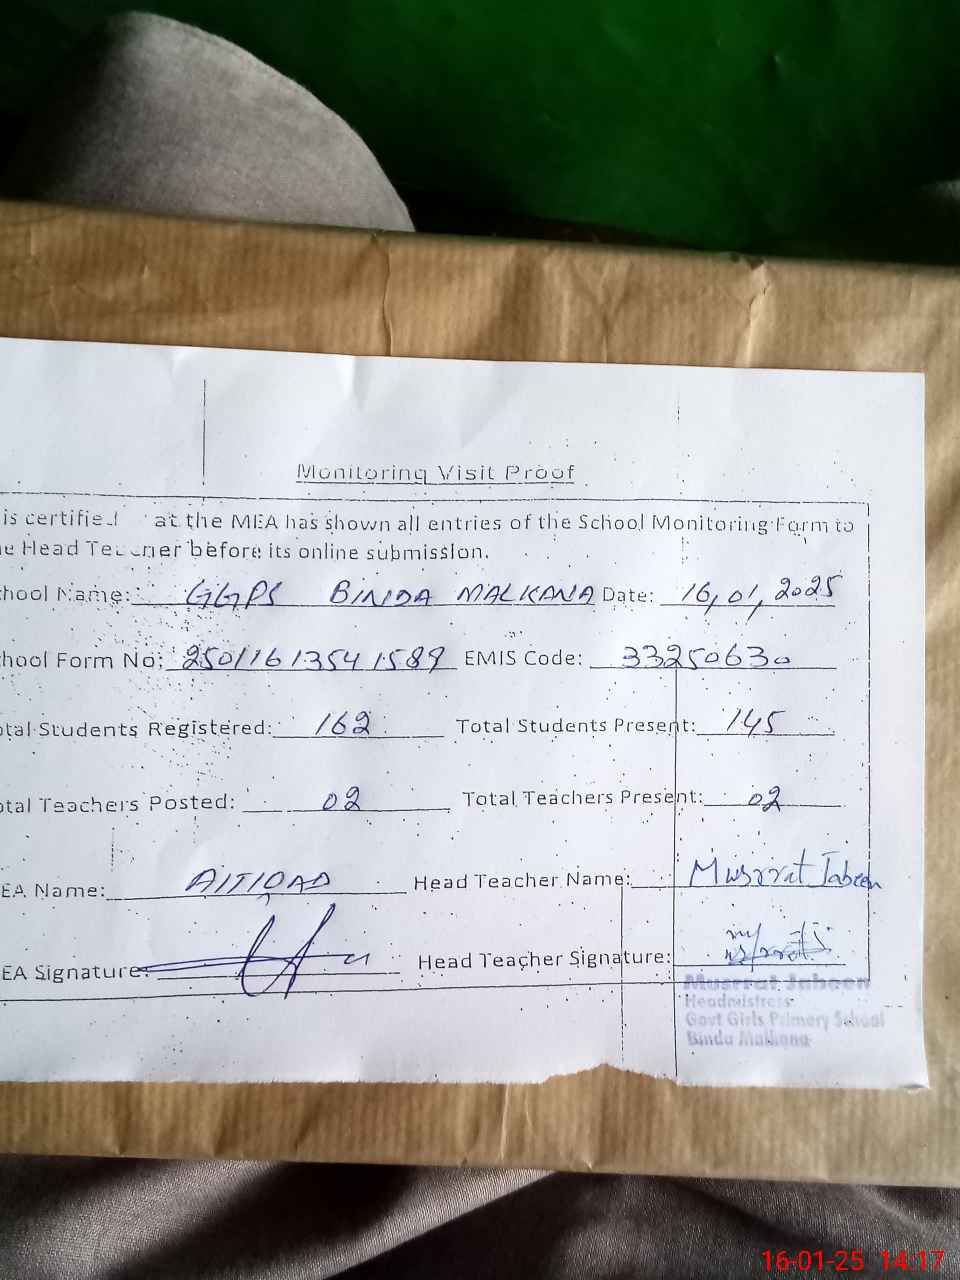 Monitoring Visit Proof
is certified at the MEA has shown all entries of the School Monitoring Form to
Head Teacher before its online submission.
hool Name: GGPS BINDA MALKANA Date: 16,01,2025
hool Form No: 250116 1354 1589 EMIS Code: 33250630
otal Students Registered: 162 Total Students Present: 145
otal Teachers Posted: 02 Total Teachers Present: 02
EA Name: Head Teacher Name: Musrrat Jabeen
EA Signature: Head Teacher Signature:
Musrrat Jabeen
Headmistress
Govt Girls Primery School
Binda Malkana
16-01-25 14:17